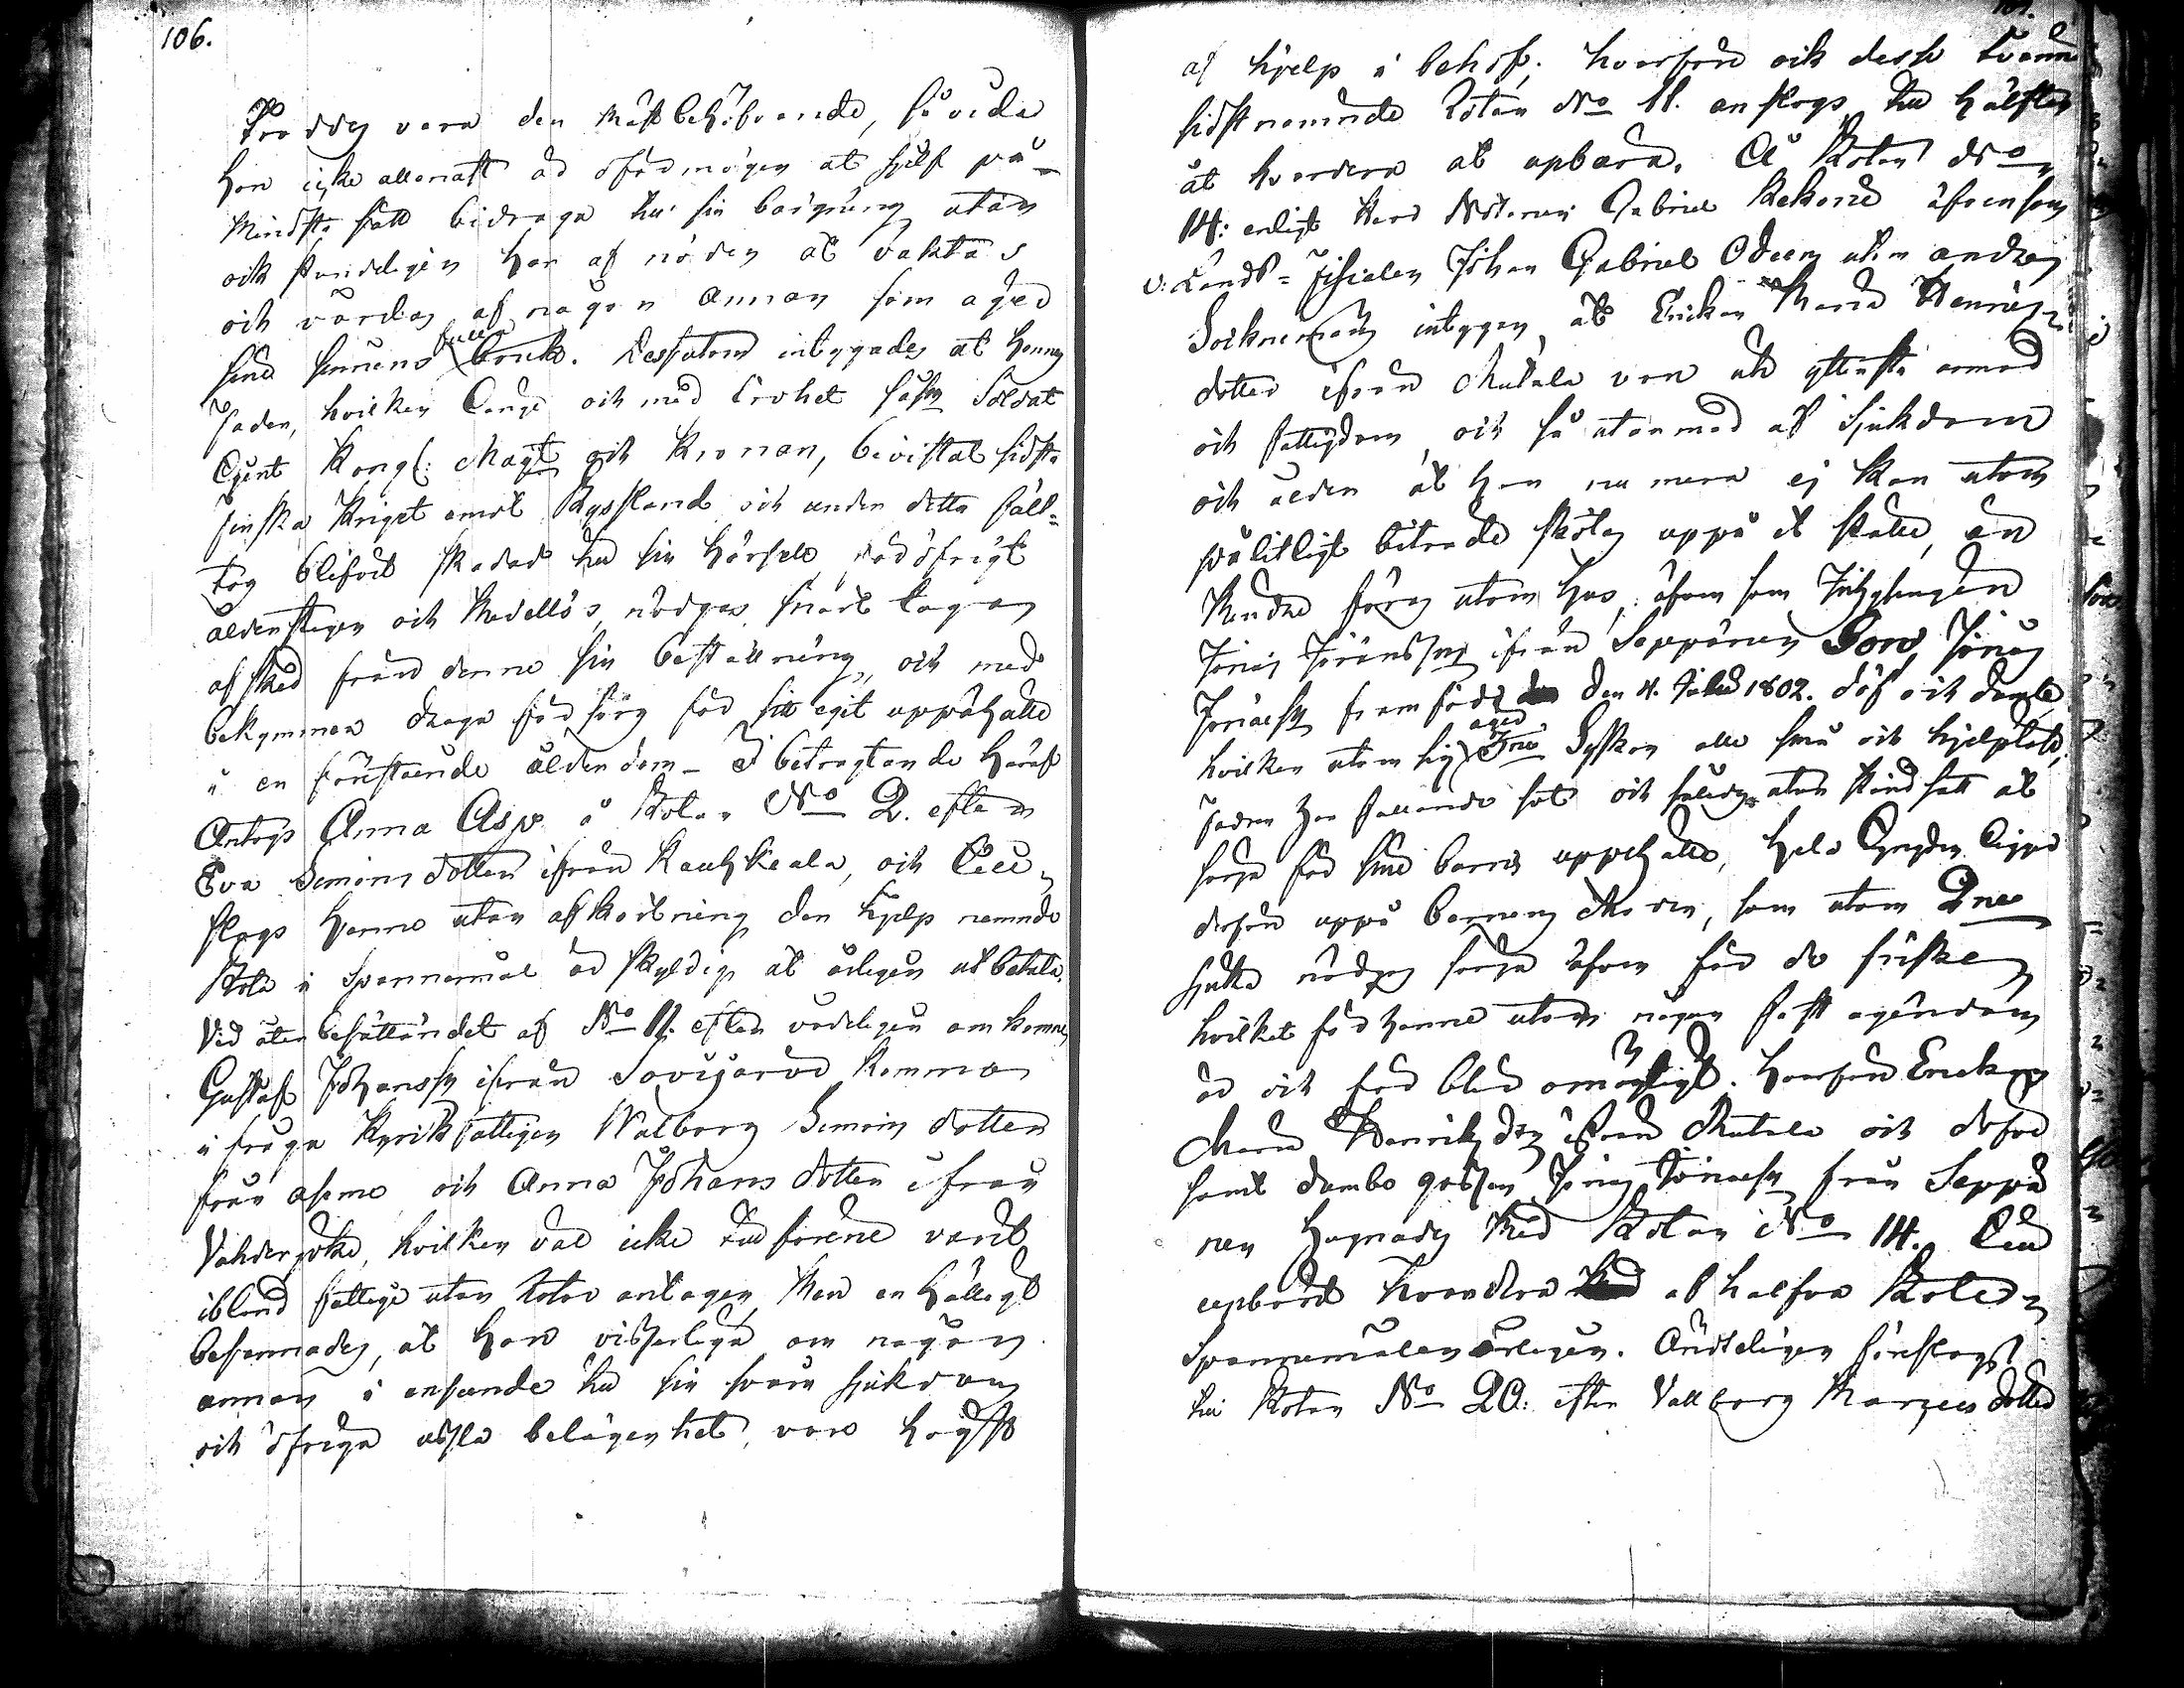 106.
troddes vara den mäst behöfvande, så vida
hon icke allenast är oförmögen at sjelf på
mindsta sätt bidraga till sin bärgning utan
och stundeligen har af nöden at vaktas
och vårdas af någon annan som äger
sine sinnens fulla bruk. Dessutom intygades at hennes
Fader, hvilken länge och med trohet såsom Soldat
tjent Kongl: Majt och Kronan, bevistat sidsta
finska Kriget emot Ryssland och under detta fält=
tog blifvit skadad till sin hörsell, är öfrigt
ålderstigen och medellös, nödgas snart tagan
afsked från denne sin beställning, och med
bekymmer draga försorg för sitt eget uppehälle
i en förestående ålderdom_ I betragtande häraf
Antogs Anna Asp å Rotan No 2. efter
Eva Simons dotter ifrån Rauhkeala, och till=
slogs henne utan afkortning den hjelp nemnde
Rota i Spannemål är skyldig at årligen utbetala.
Vid återbesättandet af No 11. efter vådeligen omkomne
Gustaf Johansson ifrån Sovijärvi kommo
i fråga Kyrkfattigen Walborg Simons dotter
från och Anna Johans dotter ifrån
hvilken väl icke till förene varit
ibland fattige utan Rotar antagen, men enhälligt
befannades, at hon visserligen om någon
annan i anseende till sin svåra sjukdom
och öfriga usla belägenhet, vore högst
af hjelp i behof; hvarföre och desse tvenne
sidstnemnde Rotan No 11. anslogs till hälften
åt hvardera at upbära. Å Rotan No
14: enligt Herr Notarien Gabriel äfvensom
v: Lands=Fiscalen Johan Gabriel Odeen utom andra
Socknemäns intygan, at Enkan Maria Henrics
dotter ifrån Mutala var uti yttersta armod
och fattigdom och så utarmad af sjukdom
och ålder at hon nu mera ej kan utom
pålitligt biträde skötas uppå et ställe, än
mindre föras utom hus; äfvensom Inhysingen
Jonas Jöransson ifrån Seppänen Son Jonas
Jonæson framfödd den 4. Julii 1802. döf och dumb
hvilken utom sig äger Trenne Syskon alle små och hjelplöse,
Fadren har fallande sot och således utan stånd satt at
sörja för sine barns uppehälle, hela tyngden ligger
derföre uppå barnens Moder, som utom 2ne
sjuka nödgas sörja äfven för de friske
hvilket för henne utan någon fast egendom
är och förblir omöjligt. Hvarföre Enckan
Maria Henricsdr ifrån Mutala och döfve
samt dumbe gossen Jonas Jonæson från Seppä
nen hugnades med Rotan No 14. till
upbörd hvardera af halfva Roten
Spannemålen årligen. Ändteligen föreslogs
till Rotan No 20: efter Vallborg dotter